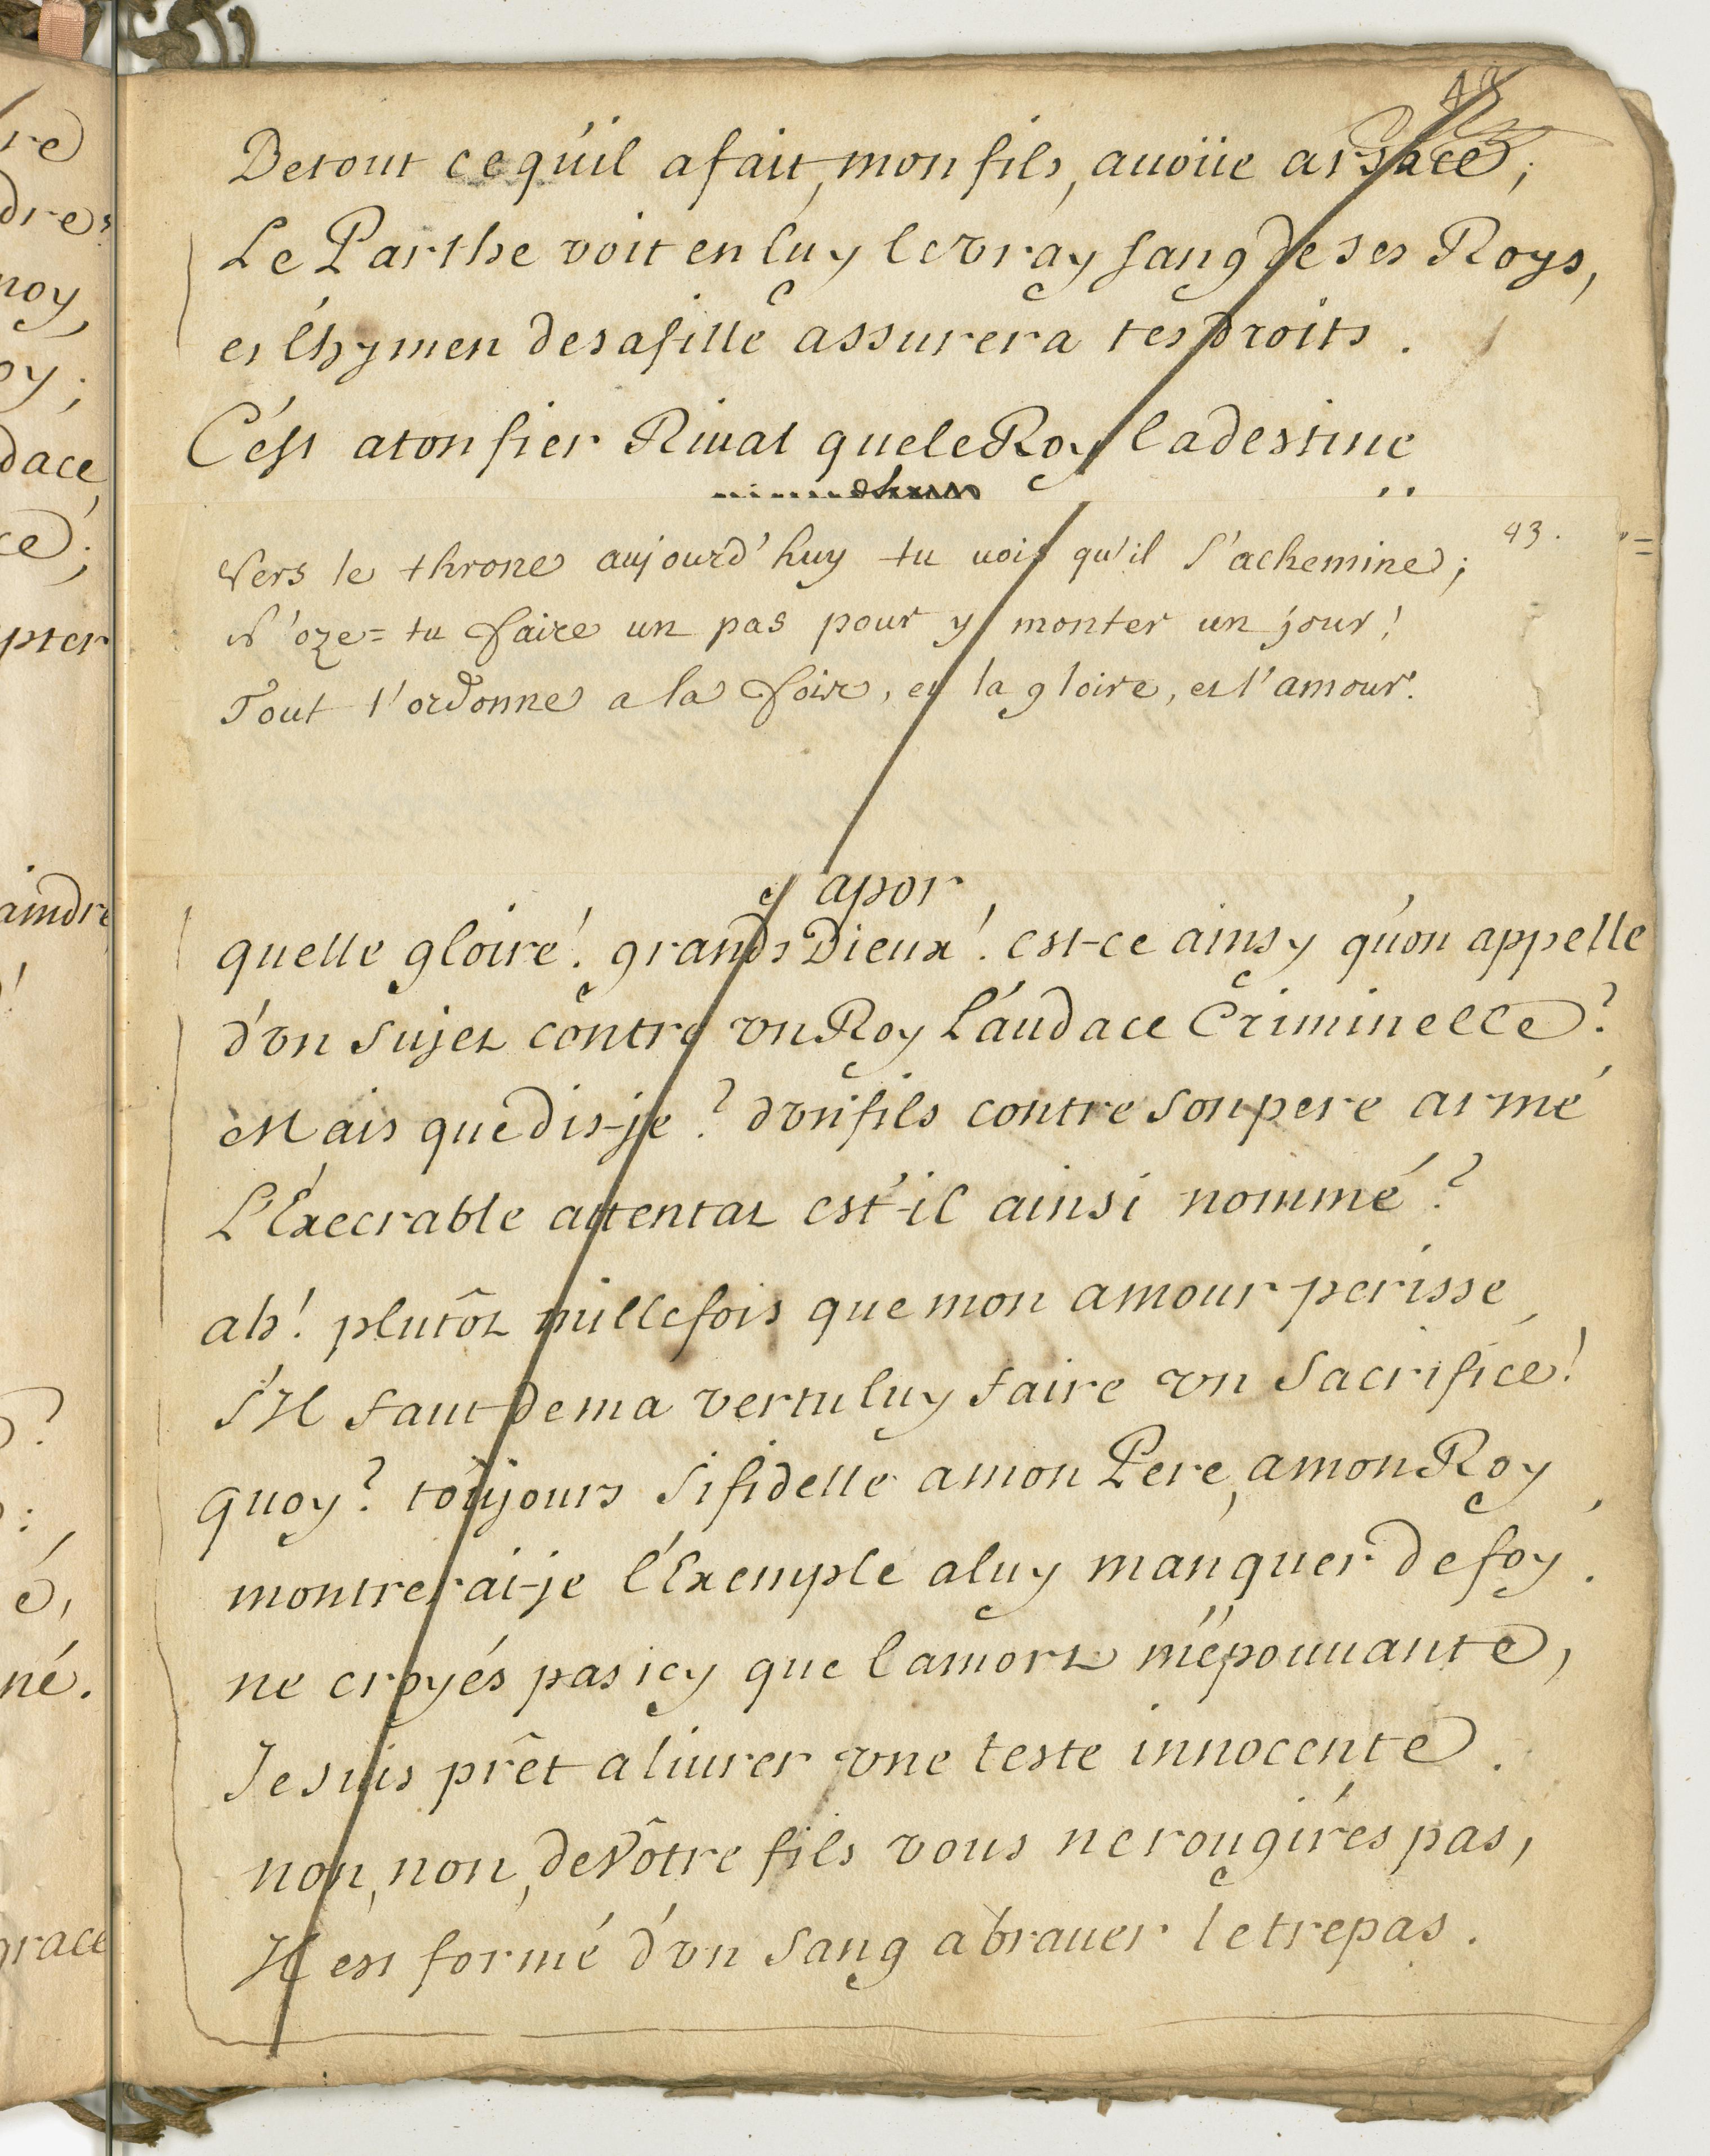 De tout ce qu'il a fait, mon fils, auoüe arsace;
Le Parthe voit en luy le vray sang de ses Roys,
et l'hymen de sa fille assurera tes droits.
C'est a ton fier Riual que le Roy la destine
43.
Vers le throne aujourd'huy tu uois qu'il s'achemine;
N'oze=tu faire un pas pour y monter un jour!
Tout l'ordonne a la fois, et la gloire, et l'amour.
apor,
quelle gloire! grands Dieux! est-ce ainsy qu'on appelle
d'vn sujet contre vn Roy l'audace Criminelle?
Mais que dis-je? d'vn fils contre son pere armé
L'Execrable attentat est-il ainsi nommé?
ah! plutôt mille fois que mon amour perisse,
s'Il faut de ma vertu luy faire vn sacrifice!
quoy? toûjours si fidelle a mon Pere, a mon Roy,
montrerai-je l'Exemple a luy manquer de foy.
ne croyés pas icy que la mort m'épouuante,
Je suis prêt a liurer vne teste innocente.
non, non, de Vôtre fils vous ne rougirés pas,
Il est formé d'vn sang a brauer le trepas.